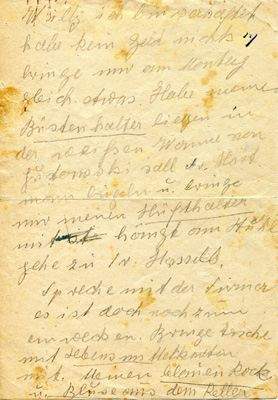 Willy ich bin
habe kein Geld nichts
bringe mir am Montag
gleich etwas. Habe meine
Büstenhalter liegen in
der weißen Wanne von
soll Fr. Hart
mann bügeln u. bringe
mir meinen Hüfthalter
mit hängt am Stuhl
gehe zu Dr.
Spreche mit der Firma
es ist doch noch zum
Bringe Tasche
mit Lebensmittelkarten
mit. Meinen kleinen Rock
u. Bluse aus dem Keller